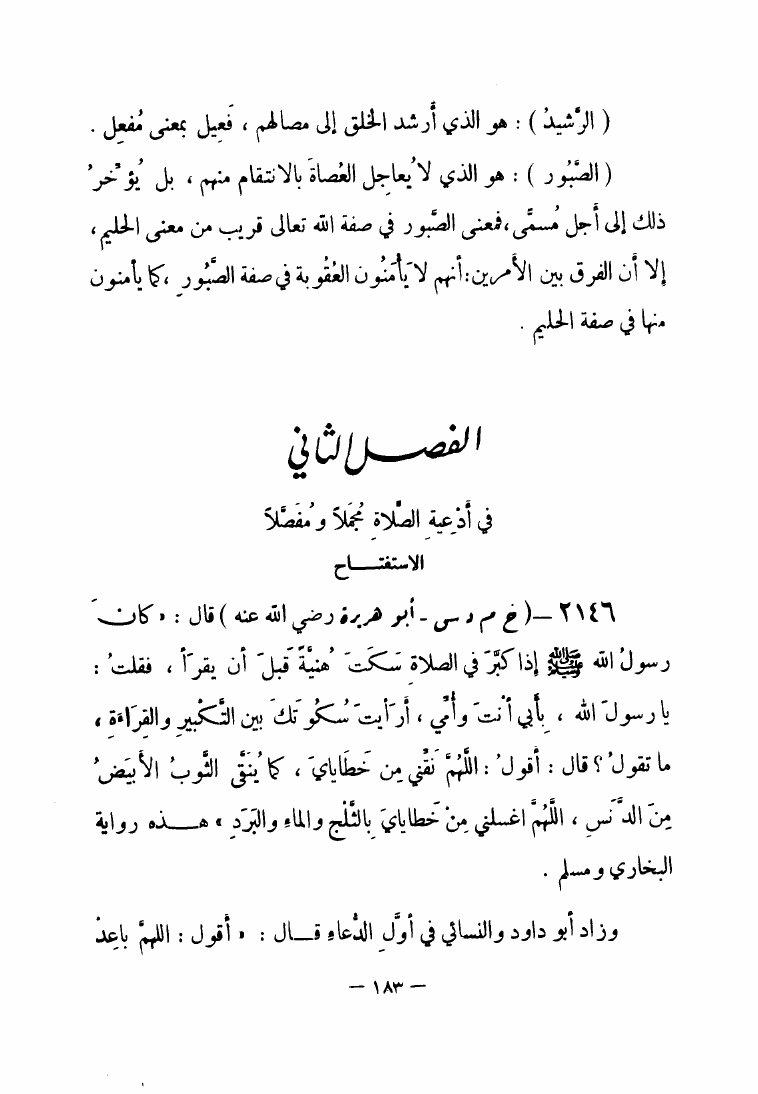 ( الرَّشيدُ ) : هو الذي أَرشد الخلق إلى مصالحهم ، فَعِيل بمعنى مُفعِل .
( الصَّبُور ) : هو الذي لا يُعاجِل العُصاةَ بالانتقام منهم ، بل يُؤَخرُ
ذلك إلى أَجل مُسمَّى ، فمعنى الصَّبور في صفة الله تعالى قريب من معنى الحليم ،
إلا أن الفرق بين الأَمرين : أنهم لا يَأْمَنُون العُقُوبة في صفة الصَّبُورِ ، كما يأمنون
منها في صفة الحليم .
الفصل الثاني
في أَدْعِيةِ الصَّلاةِ مُجمَلاً ومُفصَّلاً
الاستفتـاح
٢١٤٦ – ( خ م د س - أبو هريرة رضي الله عنه ) قال : « كانَ
رسولُ الله ﷺ إذا كبَّرَ في الصلاةِ سَكَتَ هُنَيَّةً قَبلَ أن يقرأَ ، فقلتُ :
يا رسولَ الله ، بِأَبي أنْتَ وأُمِّي ، أَرَأيتَ سُكُوتَكَ بين التَّكْبيرِ والقِرَاءَةِ ،
ما تقولُ ؟ قال : أقولُ : اللَّهُمَّ نَقِّني مِن خَطَايايَ ، كما يُنَقَّى الثَّوبُ الأبيَضُ
مِنَ الدَّنَسِ ، اللَّهُمَّ اغسلني مِنْ خَطايايَ بِالثَّلْجِ والماءِ والبَرَدِ » هـذه رواية
البخاري ومسلم .
وزاد أبو داود والنسائي في أوَّلِ الدُّعاءِ قـال : « أقول : اللهمَّ باعِدْ
– ١٨٣ –